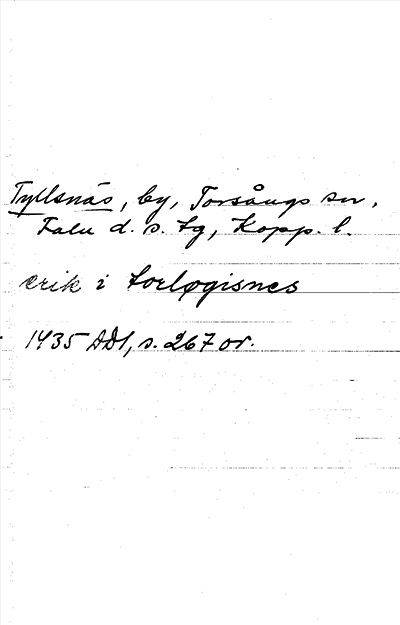 Tyllsnäs, by, Torsångs sn,
Falu d. s. tg, Kopp. l.
ærik i torløgisnes
1435 DD1, s. 267 or.